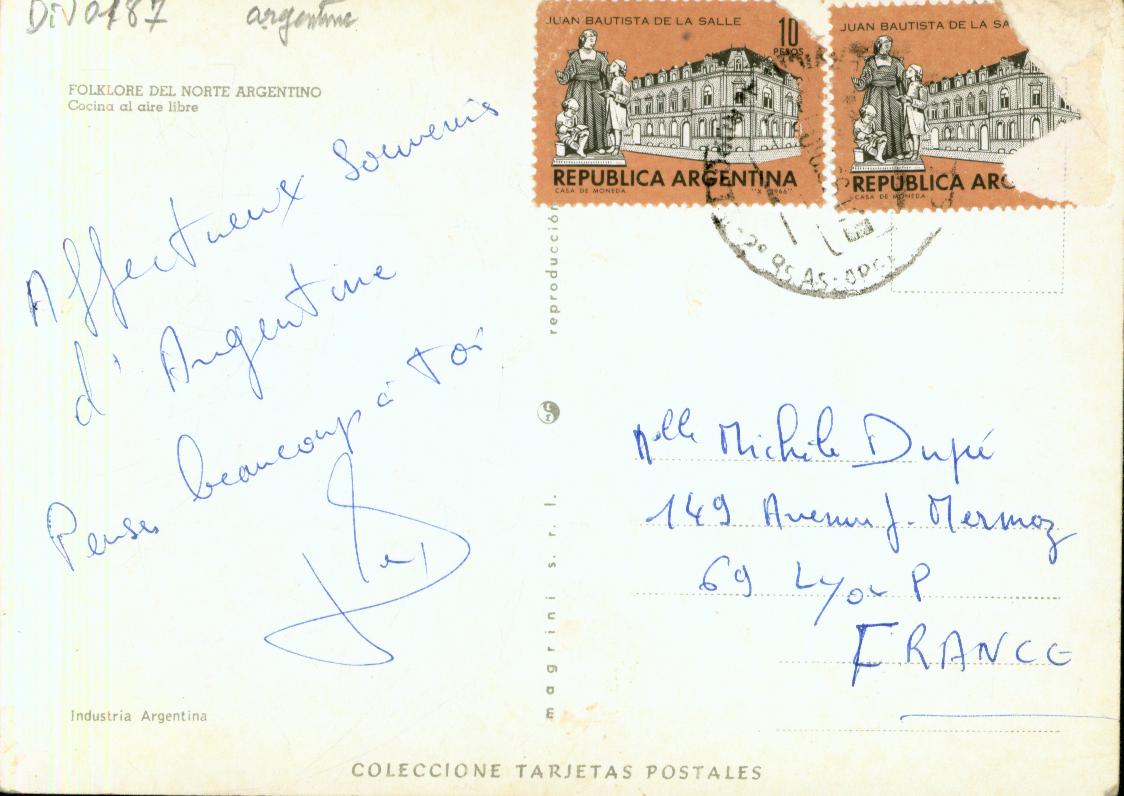 DIV0187 argentine
FOLKLORE DEL NORTE ARGENTINO
Cocina al aire libre
Affectueux Souvenirs
d'Argentine
Penses beaucoup à toi
Industria Argentina
JUAN BAUTISTA DE LA SALLE
10
PESOS
REPUBLICA ARGENTINA
CASA DE MONEDA
JUAN BAUTISTA DE LA SA
REPUBLICA ARG
CASA DE MONEDA
reproducción
magrini s.r.l.
Mlle Michèle Dupé
149 Avenue J. Mermoz
69 Lyon P
FRANCE
COLECCIONE TARJETAS POSTALES